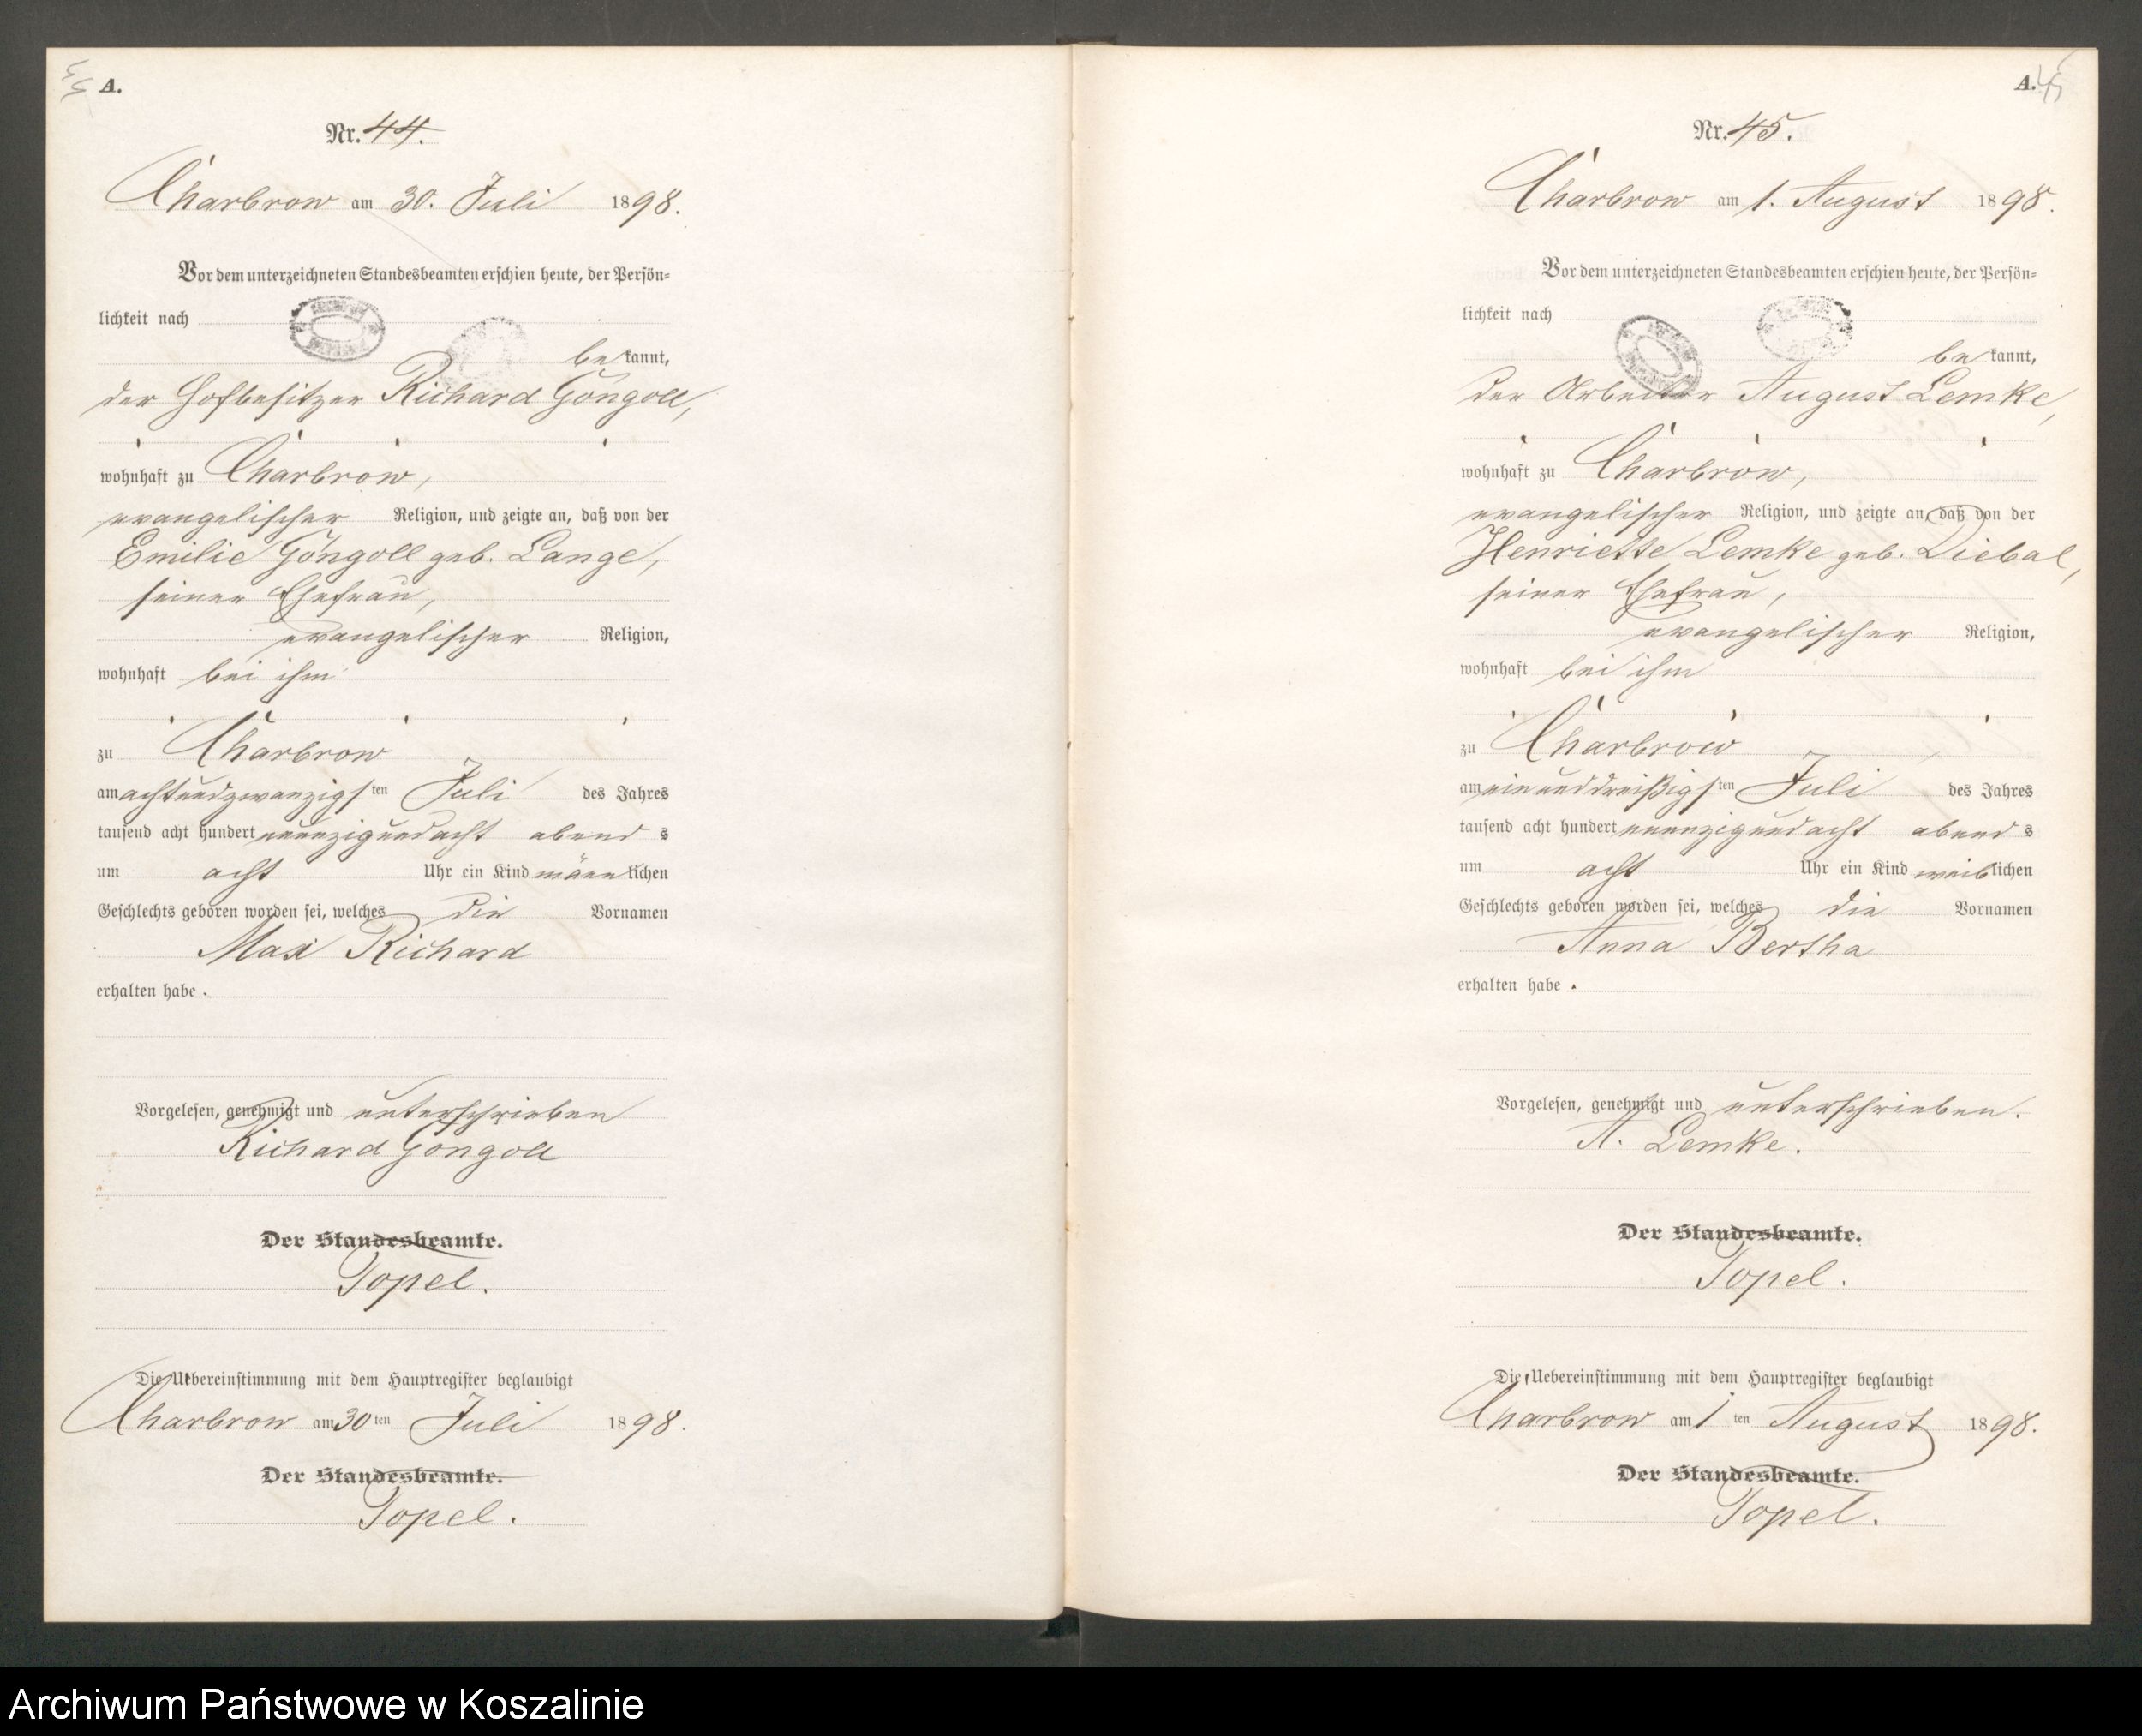 A.
Nr. 44.
Charbrow am 30. Juli 1898.
Vor dem unterzeichneten Standesbeamten erschien heute, der Persön=
lichkeit nach
bekannt,
der Hofbesitzer Richard Göngoll,
wohnhaft zu Charbrow,
evangelischer Religion, und zeigte an, daß von der
Emilie Göngoll geb. Lange,
seiner Ehefrau,
evangelischer Religion,
wohnhaft bei ihm
zu Charbrow
am achtundzwanzigsten Juli des Jahres
tausend acht hundert neunzigundacht abends
um acht Uhr ein Kind männlichen
Geschlechts geboren worden sei, welches die Vornamen
Max Richard
erhalten habe.
Vorgelesen, genehmigt und unterschrieben
Richard Göngoll
Der Standesbeamte.
Topel.
Die Uebereinstimmung mit dem Hauptregister beglaubigt
Charbrow am 30ten Juli 1898.
Der Standesbeamte.
Topel.
A. 45
Nr. 45.
Charbrow am 1. August 1898.
Vor dem unterzeichneten Standesbeamten erschien heute, der Persön=
lichkeit nach
bekannt,
der Arbeiter August Lemke,
wohnhaft zu Charbrow,
evangelischer Religion, und zeigte an, daß von der
Henriette Lemke geb. Diebal,
seiner Ehefrau,
evangelischer Religion,
wohnhaft bei ihm
zu Charbrow
am einunddreißigsten Juli des Jahres
tausend acht hundert neunzigundacht abends
um acht Uhr ein Kind weiblichen
Geschlechts geboren worden sei, welches die Vornamen
Anna Bertha
erhalten habe.
Vorgelesen, genehmigt und unterschrieben.
A. Lemke.
Der Standesbeamte.
Topel.
Die Uebereinstimmung mit dem Hauptregister beglaubigt
Charbrow am 1ten August 1898.
Der Standesbeamte.
Topel.
Archiwum Państwowe w Koszalinie